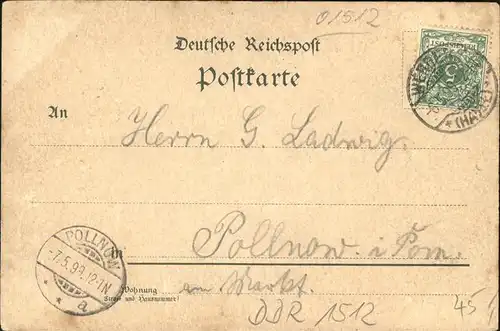 01512
Deutsche Reichspost
Postkarte
An
Herrn G. Ladwig.
POLLNOW
7.5.99.12-1N
* * a
in Pollnow i. Pom.
Wohnung
(Straße und Hausnummer)
am Markt.
DDR 1512
45
5
(HA